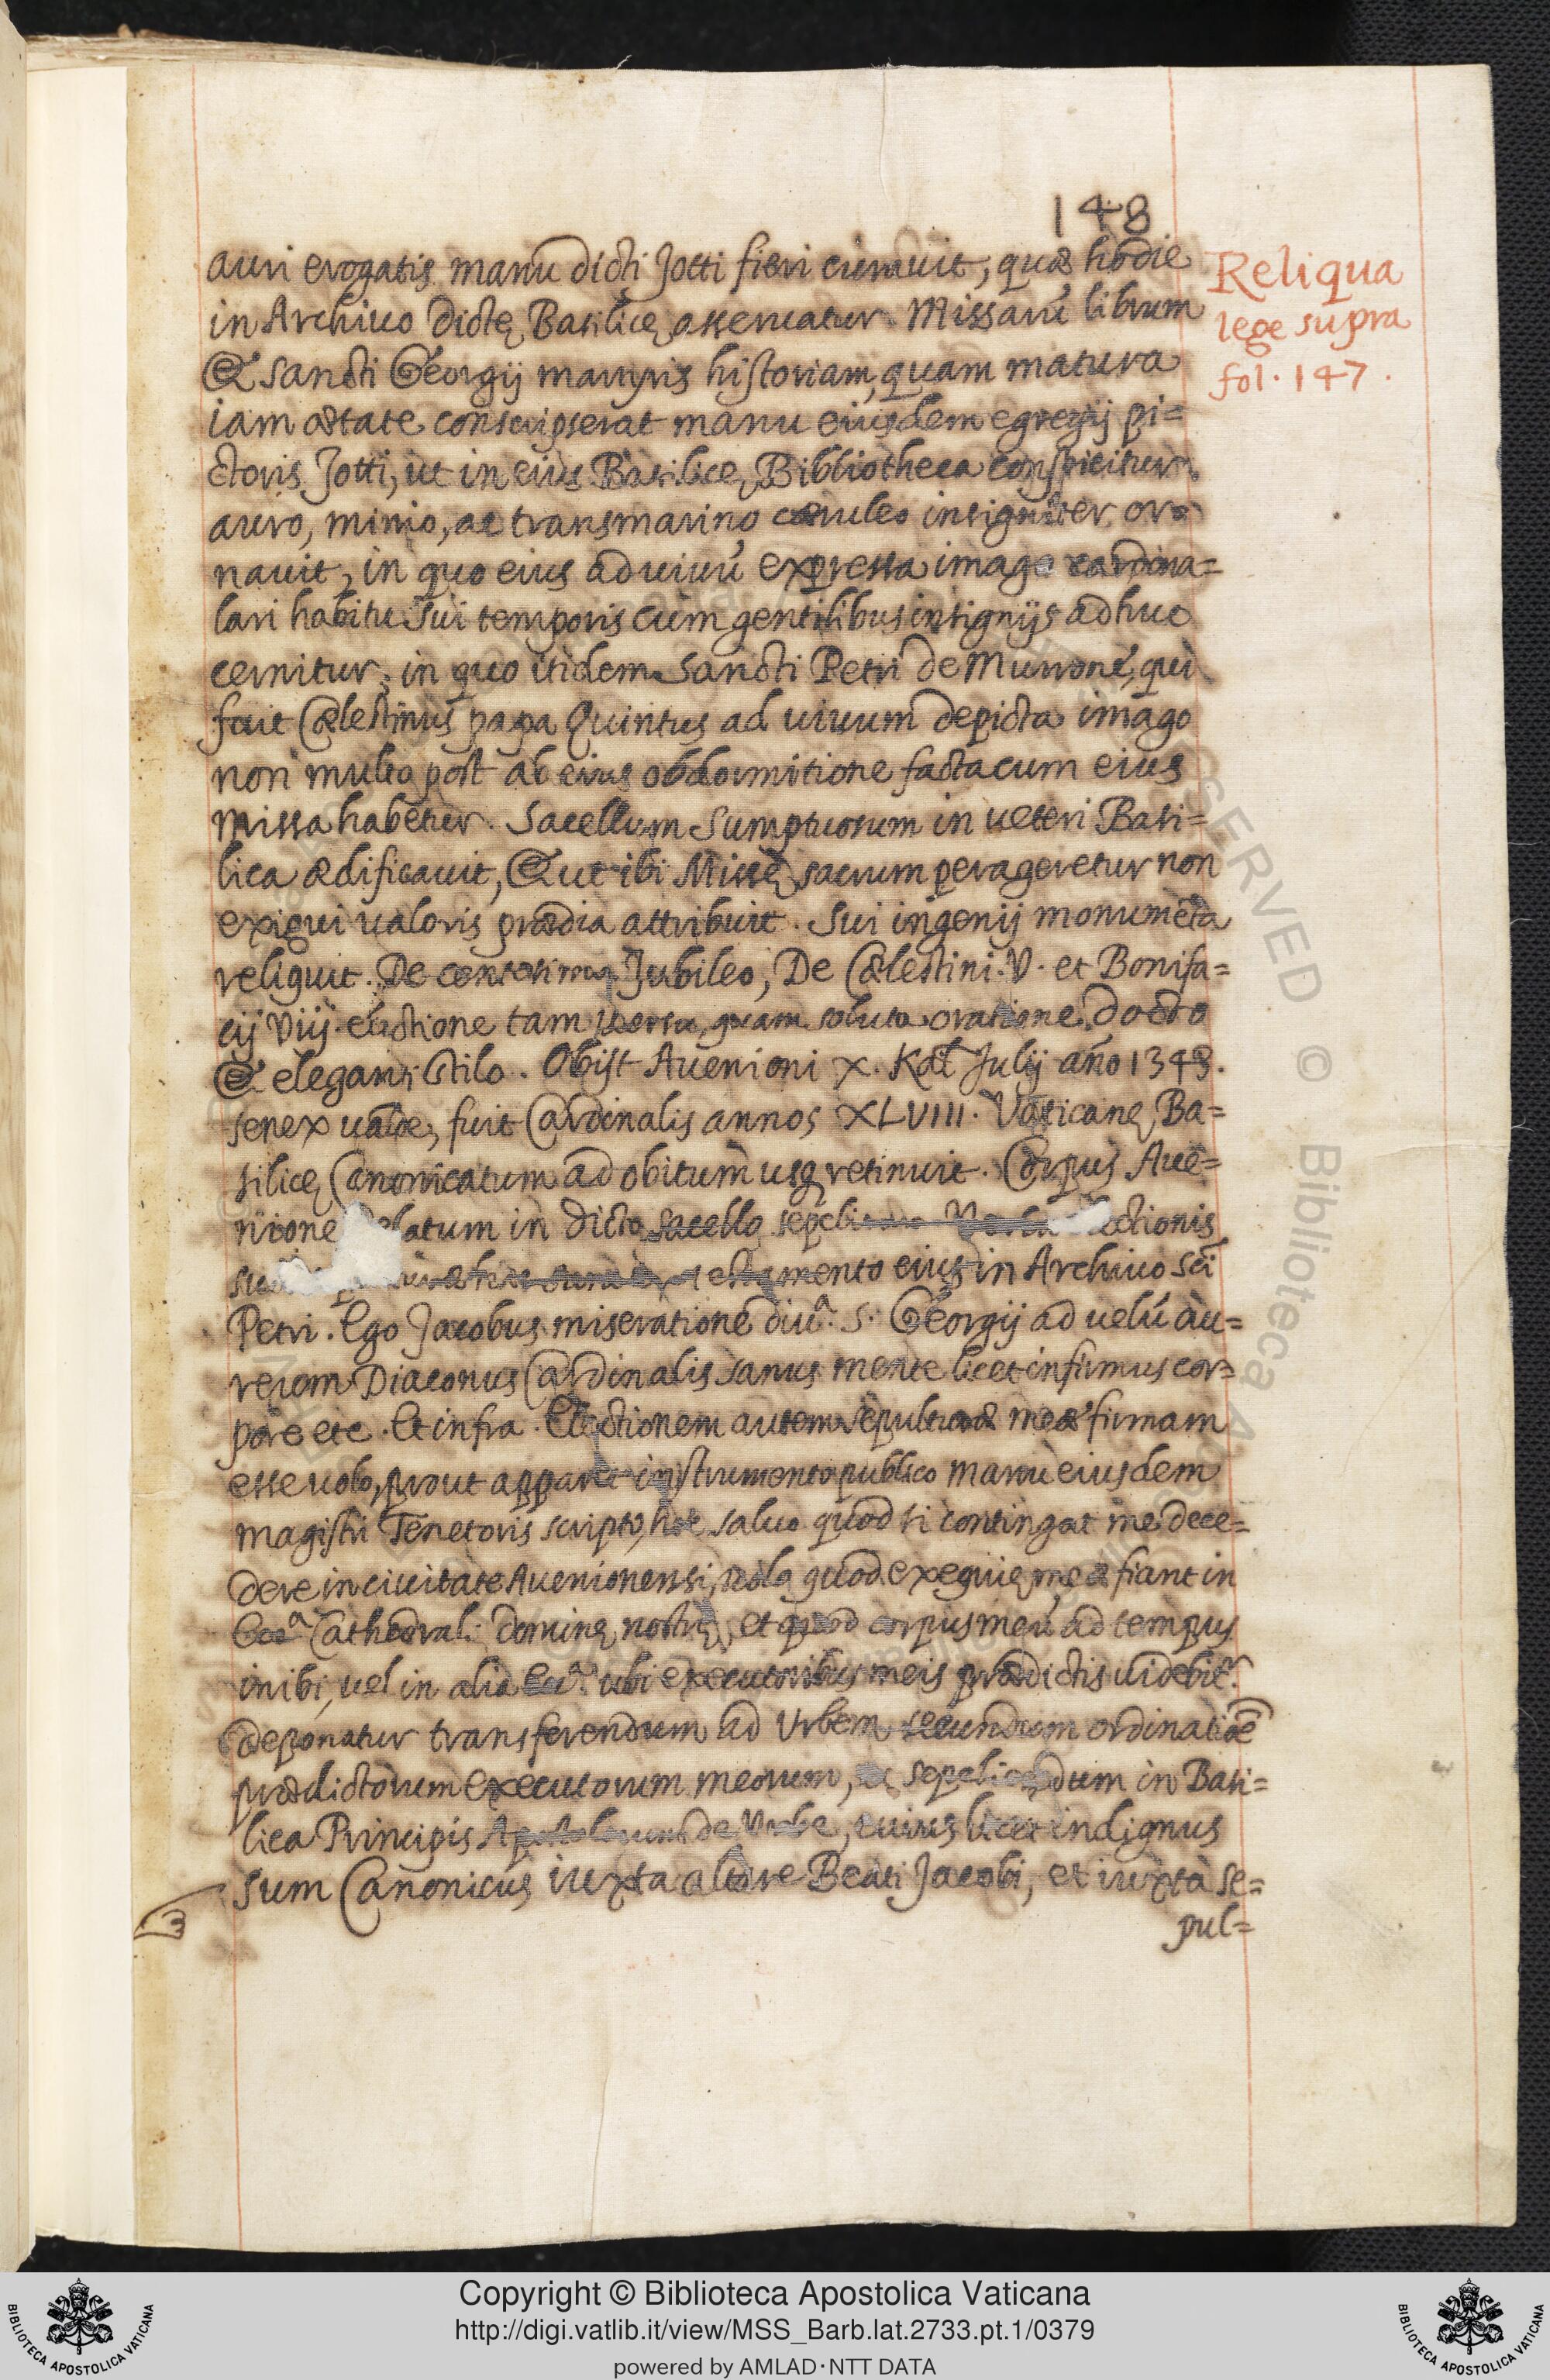 148
auri erogatis manu dicti Jotti fieri curauit, quæ hodie
in Archiuo dictę Basilicę asseruatur. Missarū librum
& sancti Georgij martyris historiam, quam matura
iam ætate conscripserat manu eiusdem egregij pi=
ctoris Jotti, ut in eius Basilicę Bibliotheca conspicitur
auro, minio, ac transmarino cæruleo insigniter or=
nauit, in quo eius ad uiuū expressa imago cardina=
lari habitu sui temporis cum gentilibus insignijs adhuc
cernitur, in quo itidem Sancti Petri de Murrone, qui
fuit Cælestinus papa Quintus ad uiuum depicta imago
non multo post ab eius obdormitione facta cum eius
missa habetur. Sacellum sumptuosum in ueteri Basi=
lica ædificauit, & ut ibi Missę sacrum perageretur non
exigui ualoris prædia attribuit. Sui ingenij monumēta
reliquit. De centesimo Jubileo, De Cælestini. V. et Bonifa=
cij Viij. electione tam uersu, quam soluta oratione docto
& eleganti stilo. Obijt Auenioni X. Kal Julij año 1343.
senex ualde, fuit Cardinalis annos XLVIII. Vaticanę Ba=
silicę Canonicatum ad obitum usq retinuit. Corpus Aue=
nione delatum in dicto sacello
testamento eius in Archiuo Sci
Petri. Ego Jacobus miseratione diuᵃ. S. Georgij ad uelū au=
reum Diaconus Cardinalis sanus mente licet infirmus cor=
pore etc. Et infra. Electionem autem sepulturæ meæ firmam
esse uolo, prout apparet instrumento publico manu eiusdem
magistri Tenetoris scripto, hoc saluo quod si contingat me dece=
dere in ciuitate Auenionensi, uolo quod exequię meæ fiant in
Eccᵃ Cathedrali dominę nostrę, et quod corpus meū ad tempus
inibi, uel in alia Eccᵃ. ubi executoribus meis prædictis uidebitʳ.
deponatur transferendum ad Vrbem secundum ordinatioē
prædictorum executorum meorum, ac sepeliendum in Basi=
lica Principis Apostolorum de Vrbe, cuius licet indignus
sum Canonicus iuxta altare Beati Jacobi, et iuxta se=
pul=
Reliqua
lege supra
fol. 147.
Copyright © Biblioteca Apostolica Vaticana
http://digi.vatlib.it/view/MSS_Barb.lat.2733.pt.1/0379
powered by AMLAD·NTT DATA
BIBLIOTECA APOSTOLICA VATICANA
BIBLIOTECA APOSTOLICA VATICANA